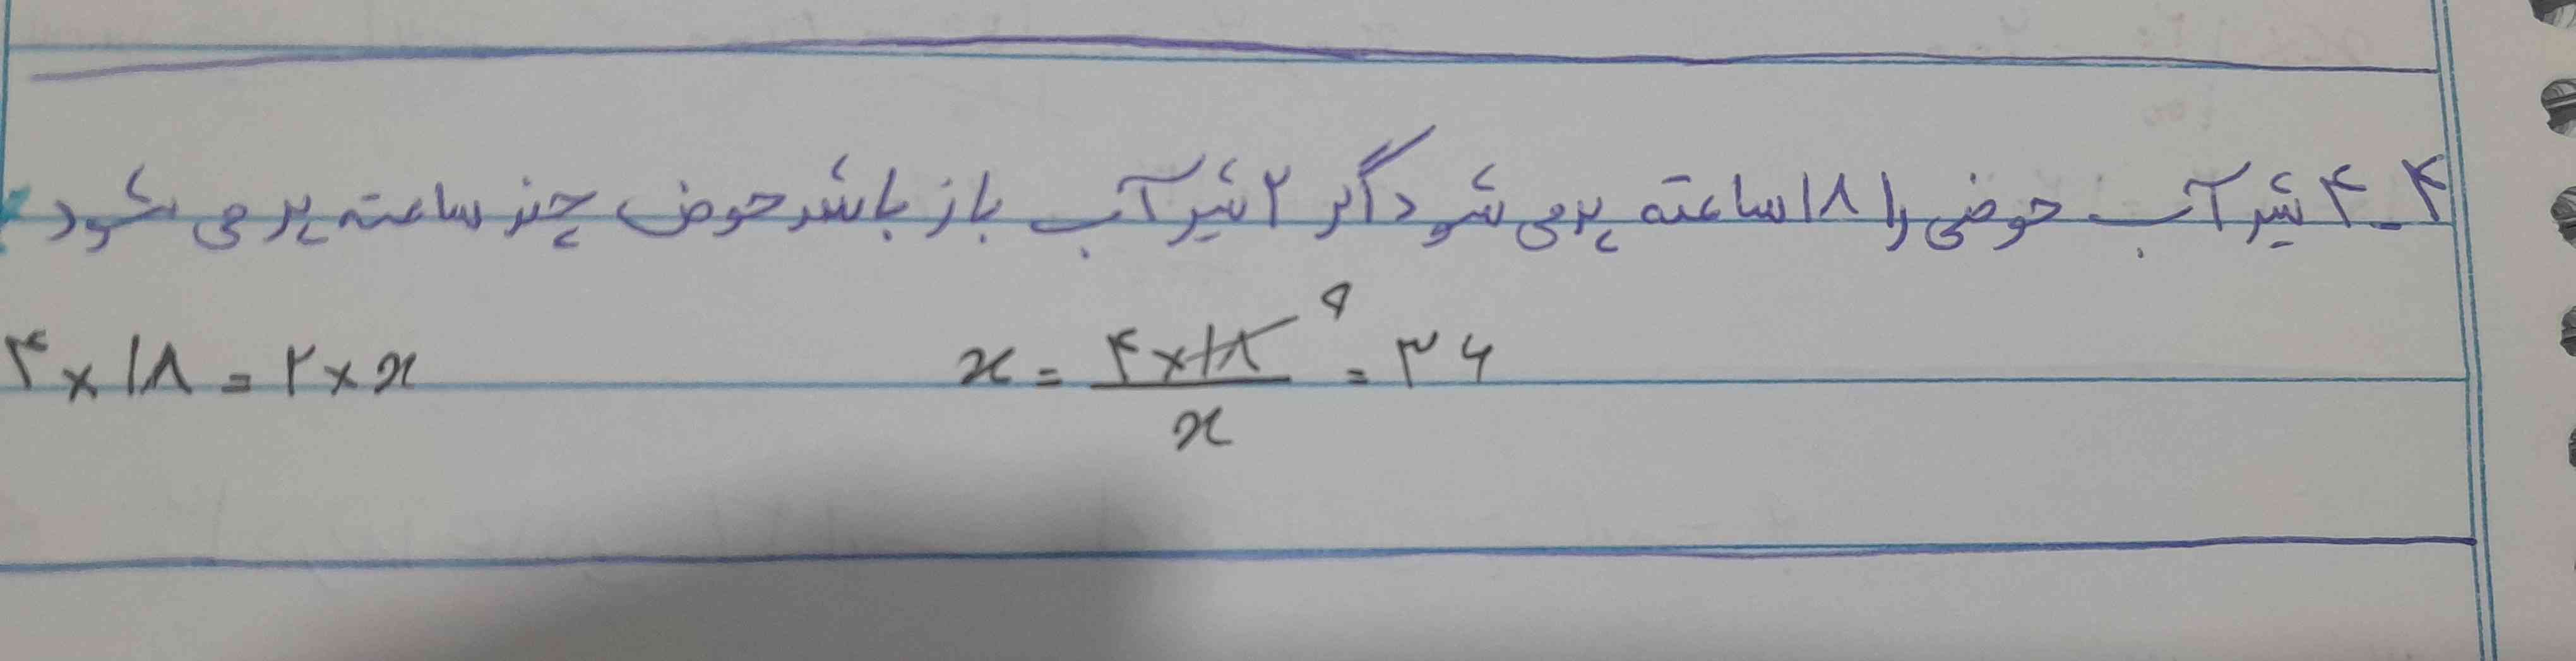 ۴_ ۴ شیر آب حوضی را ۱۸ ساعته پر می شود اگر ۲ شیر آب باز باشد حوض چند ساعته پر می شود
۴ × ۱۸ = ۲ × x    x = (۴ × ۱۸)/x = ۳۶
۹